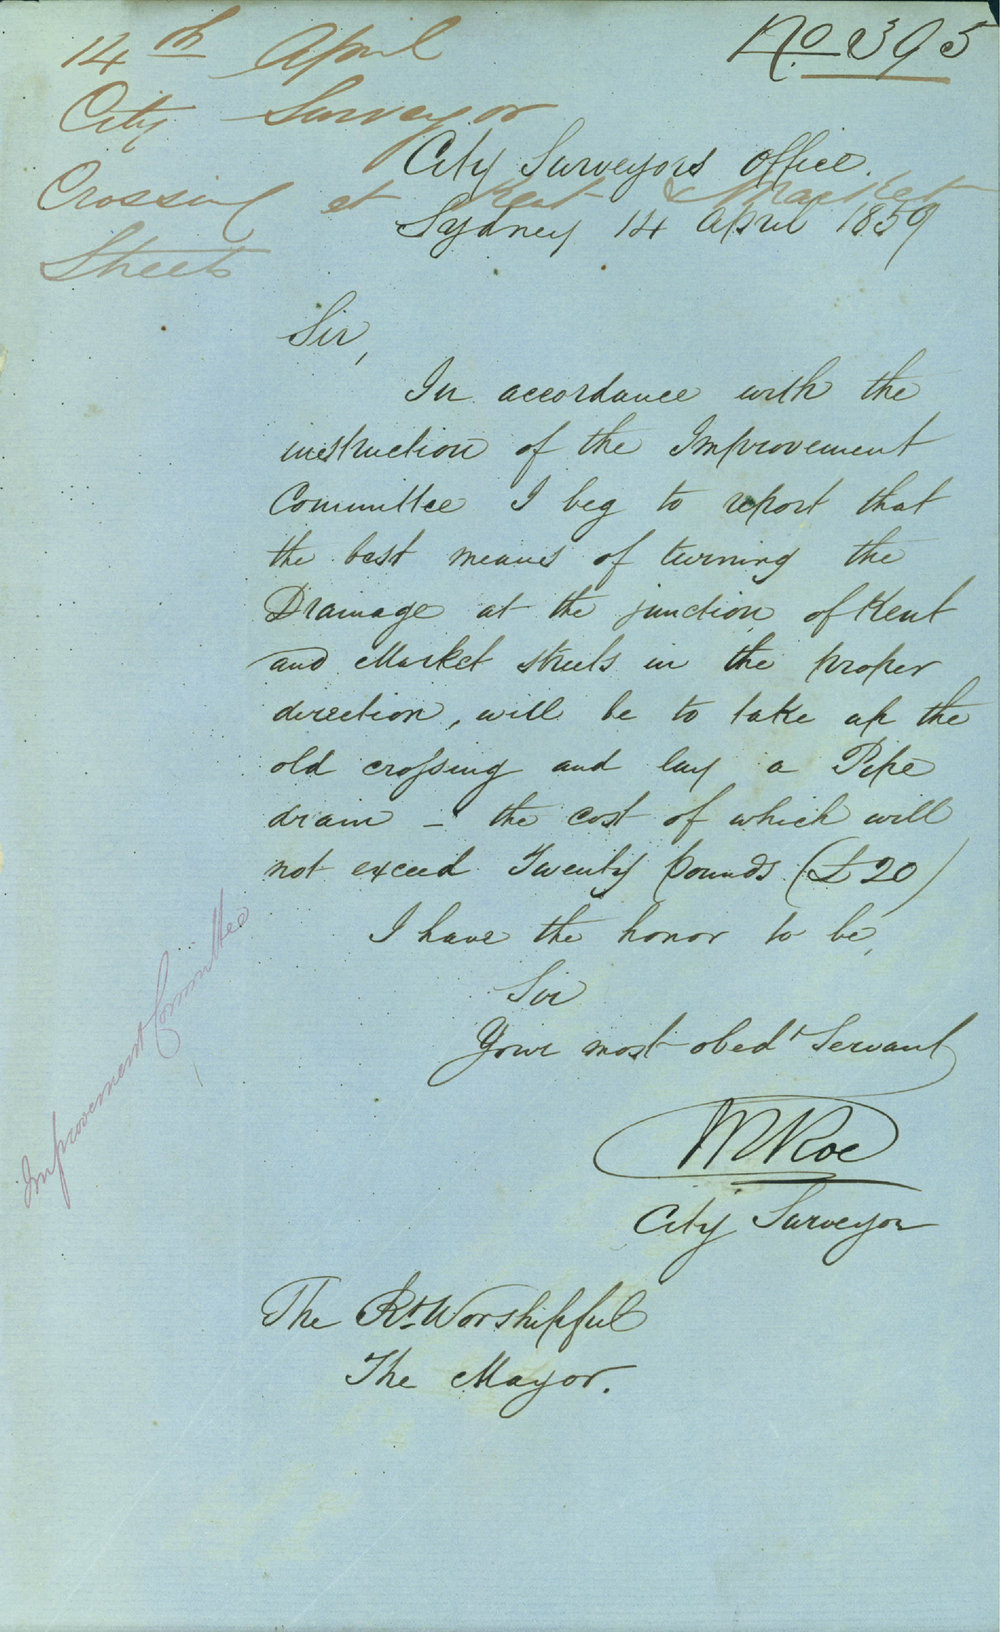 No 395
14th April
City Surveyor
Crossing at Kent & Market
Streets
City Surveyors Office.
Sydney 14 April 1859
Sir,
In accordance with the
instruction of the Improvement
Committee I beg to report that
the best means of turning the
Drainage at the junction of Kent
and Market streets in the proper
direction, will be to take up the
old crossing and lay a Pipe
drain – the cost of which will
not exceed Twenty pounds (£20)
I have the honor to be,
Sir
Your most obedt Servant
WRoe
City Surveyor
The Rt. Worshipful
The Mayor.
Improvement Committee